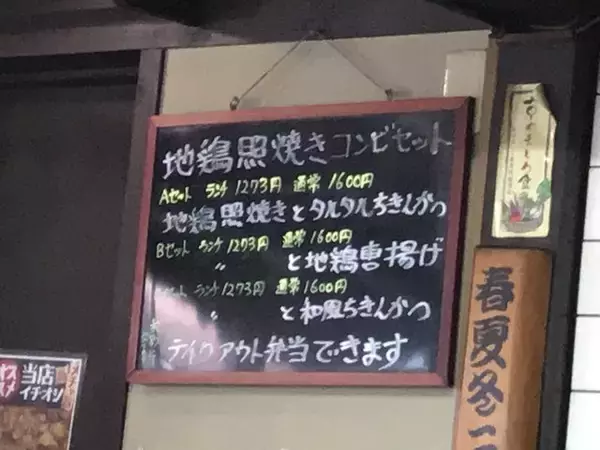 地鶏照焼きコンビセット
Aセット ランチ 1273円 通常 1600円
地鶏照焼きとタルタルちきんかつ
Bセット ランチ 1293円 通常 1600円
〃 と地鶏唐揚げ
セット ランチ 1273円 通常 1600円
〃 と和風ちきんかつ
テイクアウト弁当できます
春夏冬二
オススメ
当店イチオシ